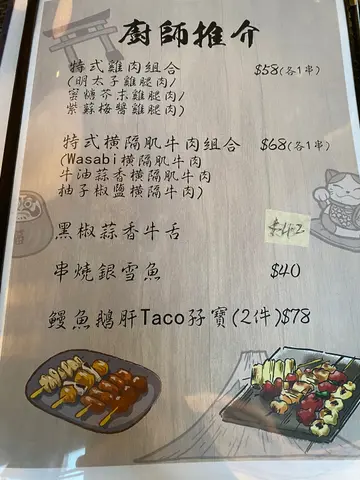 廚師推介
特式雞肉組合 $58(各1串)
(明太子雞腿肉/
蜜糖芥末雞腿肉/
紫蘇梅醬雞腿肉)
特式橫隔肌牛肉組合 $68(各1串)
(Wasabi橫隔肌牛肉
牛油蒜香橫隔肌牛肉
柚子椒鹽橫隔牛肉)
黑椒蒜香牛舌 $42
串燒銀雪魚 $40
鰻魚鵝肝Taco孖寶(2件)$78